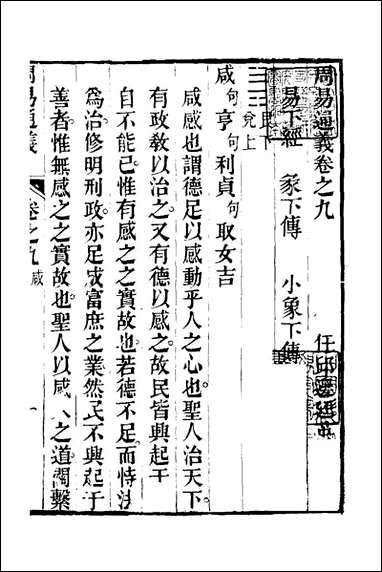 周易通義卷之九
任邱邊廷英
易下經 彖下傳 小象下傳
艮下
兌上
咸句亨句利貞句取女吉
咸感也謂德足以感動乎人之心也聖人治天下
有政敎以治之又有德以感之故民皆興起于
自不能已惟有感之之實故也若德不足而恃法
爲治修明刑政亦足成富庶之業然民不興起于
善者惟無感之之實故也聖人以感人之道闊繫
周易通義 卷之九 咸 一